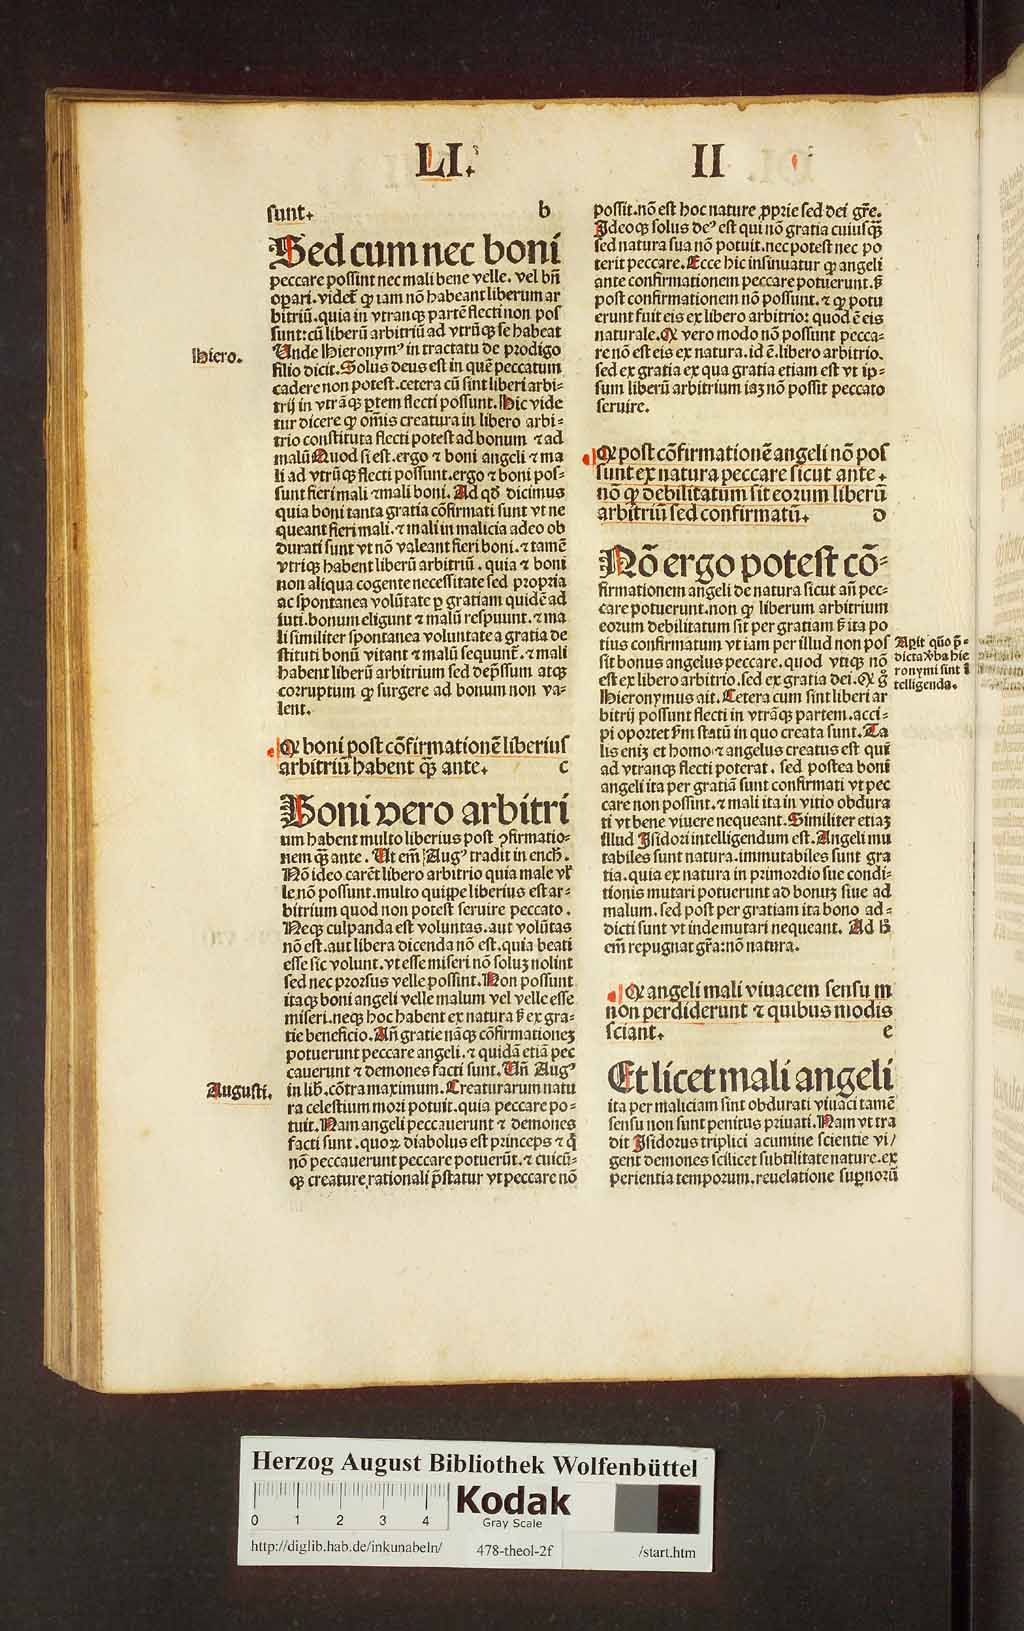 LI.
II
sunt. b
Sed cum nec boni
peccare possint nec mali bene velle. vel bn̄
oꝑari. videt̄ ꝙ iam nō habeant liberum ar
bitriū. quia in vtranque partē flecti non pos
sunt: cū liberū arbitriū ad vtrūqꝫ se habeat
Hiero.
Unde Hieronymꝰ in tractatu de prodigo
filio dicit. Solus deus est in quē peccatum
cadere non potest. cetera cū sint liberi arbi⸗
trij in vtrāqꝫ ꝑtem flecti possunt. Hic vide
tur dicere ꝙ om̄is creatura in libero arbi⸗
trio constituta flecti potest ad bonum ⁊ ad
malū Quod si est. ergo ⁊ boni angeli ⁊ ma
li ad vtrūqꝫ flecti possunt. ergo ⁊ boni pos⸗
sunt fieri mali ⁊ mali boni. Ad qḋ dicimus
quia boni tanta gratia cōfirmati sunt vt ne
queant fieri mali. ⁊ mali in malicia adeo ob
durati sunt vt nō valeant fieri boni. ⁊ tamē
vtriqꝫ habent liberū arbitriū. quia ⁊ boni
non aliqua cogente necessitate sed propria
ac spontanea volūtate ꝑ gratiam quidē ad
iuti. bonum eligunt ⁊ malū respuunt. ⁊ ma
li similiter spontanea voluntate a gratia de
stituti bonū vitant ⁊ malū sequunt̄. ⁊ mali
habent liberū arbitrium sed dep̄ssum atqꝫ
corruptum ꝙ surgere ad bonum non va⸗
lent.
Ꝙ boni post cōfirmationē liberius
arbitriū habent qꝫ̄ ante. c
Boni vero arbitri
um habent multo liberius post ꝯfirmatio⸗
nem qꝫ̄ ante. Ut em̄ Augꝰ tradit in ench̄.
Nō ideo carēt libero arbitrio quia male vel
le nō possunt. multo quippe liberius est ar⸗
bitrium quod non potest seruire peccato.
Neqꝫ culpanda est voluntas. aut volūtas
nō est. aut libera dicenda nō est. quia beati
esse sic volunt. vt esse miseri nō soluꝫ nolint
sed nec prorsus velle possint. Non possunt
itaqꝫ boni angeli velle malum vel velle esse
miseri. neqꝫ hoc habent ex natura s̄ ex gra⸗
tie beneficio. An̄ gratie nāqꝫ cōfirmationeꝫ
potuerunt peccare angeli. ⁊ quidā etiā pec
cauerunt ⁊ demones facti sunt. Un̄ Augꝰ
Augusti.
in lib̄. cōtra maximum. Creaturarum natu
ra celestium mori potuit. quia peccare po⸗
tuit. Nam angeli peccauerunt ⁊ demones
facti sunt. quoꝝ diabolus est princeps ⁊ q̄
nō peccauerunt peccare potuerūt. ⁊ cuicū⸗
qꝫ creature rationali p̄statur vt peccare nō
possit. nō est hoc nature ꝓprie sed dei gr̄e.
Ideoqꝫ solus deꝰ est qui nō gratia cuiusqꝫ̄
sed natura sua nō potuit. nec potest nec po
terit peccare. Ecce hic insinuatur ꝙ angeli
ante confirmationem peccare potuerunt. s̄
post confirmationem nō possunt. ⁊ ꝙ potu
erunt fuit eis ex libero arbitrio: quod ē eis
naturale. Ꝙ vero modo nō possunt pecca⸗
re nō est eis ex natura. id ē. libero arbitrio.
sed ex gratia ex qua gratia etiam est vt ip⸗
sum liberū arbitrium iaꝫ nō possit peccato
seruire.
Ꝙ post cōfirmationē angeli nō pos
sunt ex natura peccare sicut ante.
nō ꝙ debilitatum sit eorum liberū
arbitriū sed confirmatū. d
Nō ergo potest cō⸗
firmationem angeli de natura sicut an̄ pec⸗
care potuerunt. non ꝙ liberum arbitrium
eorum debilitatum sit per gratiam s̄ ita po
tius confirmatum vt iam per illud non pos
sit bonus angelus peccare. quod vtiqꝫ nō
est ex libero arbitrio. sed ex gratia dei. Ꝙ g̊
Aꝑit quō p̄⸗
dicta v̄ba hie
ronymi sint ī
telligenda.
Hieronymus ait. Cetera cum sint liberi ar
bitrij possunt flecti in vtrāqꝫ partem. acci⸗
pi oportet s̄m statū in quo creata sunt. Ta
lis eniꝫ et homo ⁊ angelus creatus est qui
ad vtranqꝫ flecti poterat. sed postea boni
angeli ita per gratiā sunt confirmati vt pec
care non possint. ⁊ mali ita in vitio obdura
ti vt bene viuere nequeant. Similiter etiaꝫ
illud Isidori intelligendum est. Angeli mu
tabiles sunt natura. immutabiles sunt gra
tia. quia ex natura in primordio sue condi⸗
tionis mutari potuerunt ad bonuꝫ siue ad
malum. sed post per gratiam ita bono ad⸗
dicti sunt vt inde mutari nequeant. Ad h̄
em̄ repugnat gr̄a: nō natura.
Ꝙ angeli mali viuacem sensum
non perdiderunt ⁊ quibus modis
sciant. e
Et licet mali angeli
ita per maliciam sint obdurati viuaci tamē
sensu non sunt penitus priuati. Nam vt tra
dit Isidorus triplici acumine scientie vi/
gent demones scilicet subtilitate nature. ex
perientia temporum. reuelatione suꝑnorū
Herzog August Bibliothek Wolfenbüttel
0 1 2 3 4
Kodak
Gray Scale
http://diglib.hab.de/inkunabeln/
478-theol-2f
/start.htm